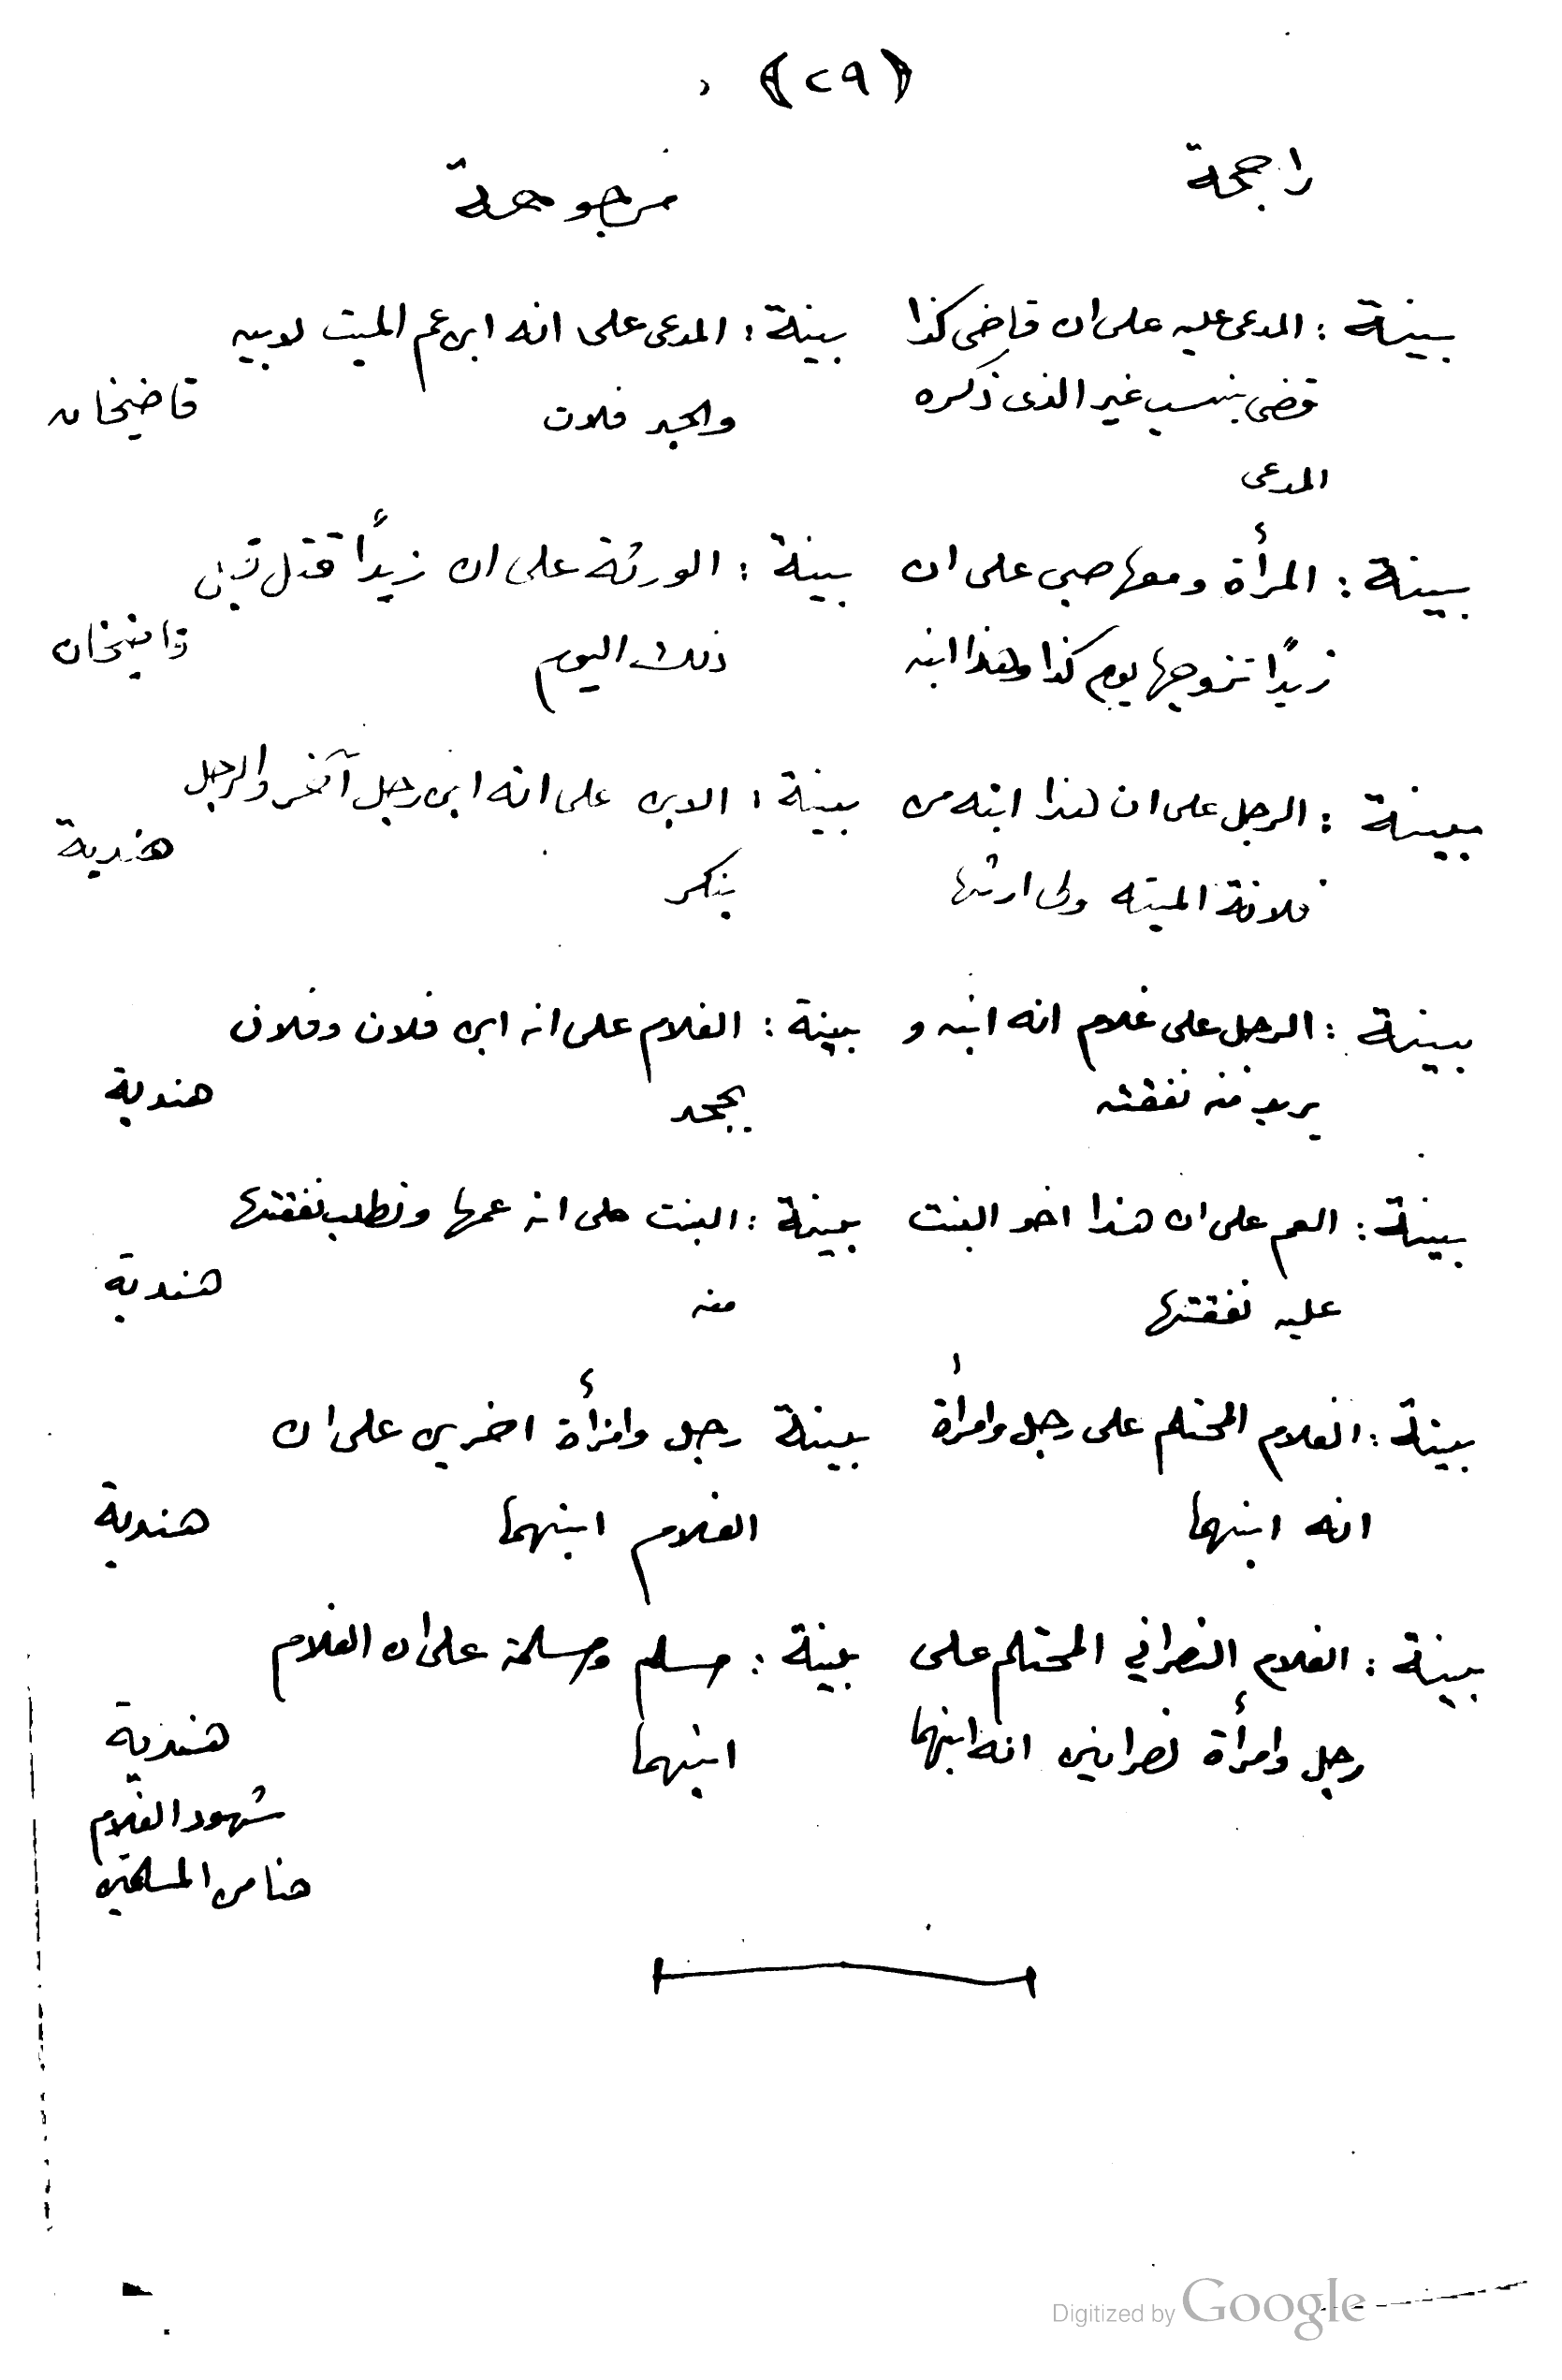 (٢٩)
راجحة
مرجوحة
بينة : المدعى عليه على ان قاضى كذا
قضى بنسب غير الذى ذكره
المدعى
بينة : المدعى على انه ابن عم الميت لابيه
والجد فلان
قاضيخان
بينة : المرأة ومعها صبى على ان
زيدًا تزوجها يوم كذا وهذا ابنه
بينة : الورثة على ان زيدًا قتل قبل
ذلك اليوم
قاضيخان
بينة : الرجل على ان هذا ابنه من
فلانة الميته ولى ارثها
بينة : الابن على انه ابن رجل آخر والرجل
ينكر
هندية
بينة : الرجل على غلام انه ابنه و
يريد منه نفقته
بينة : الغلام على انه ابن فلان وفلان
يجحد
هندية
بينة : العم على ان هذا اخو البنت
عليه نفقتها
بينة : البنت على انه عمها وتطلب نفقتها
منه
هندية
بينة : الغلام المحتلم على رجل وامرأة
انه ابنهما
بينة رجل وامرأة اخرين على ان
الغلام ابنهما
هندية
بينة : الغلام النصراني المحتلم على
رجل وامرأة نصرانين انه ابنهما
بينة : مسلم ومسلمة على ان الغلام
ابنهما
هندية
شهود الغلام
هنا من المسلمين
Digitized by Google